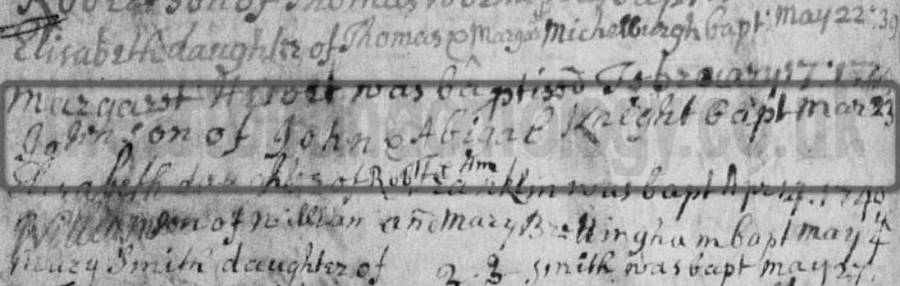 son of Thomas
Elisabeth daughter of Thomas & Margat Michelburgh bapt: May 22: 39
Margaret was baptised February 17:
John son of John & Abigal Knight bapt Mar 23
Elizabeth daughter of Robt & Ann Franklin was bapt Apr 4. 1740
William son of William and Mary Brettingham bapt may 4
Mary Smith daughter of Smith was bapt may 27